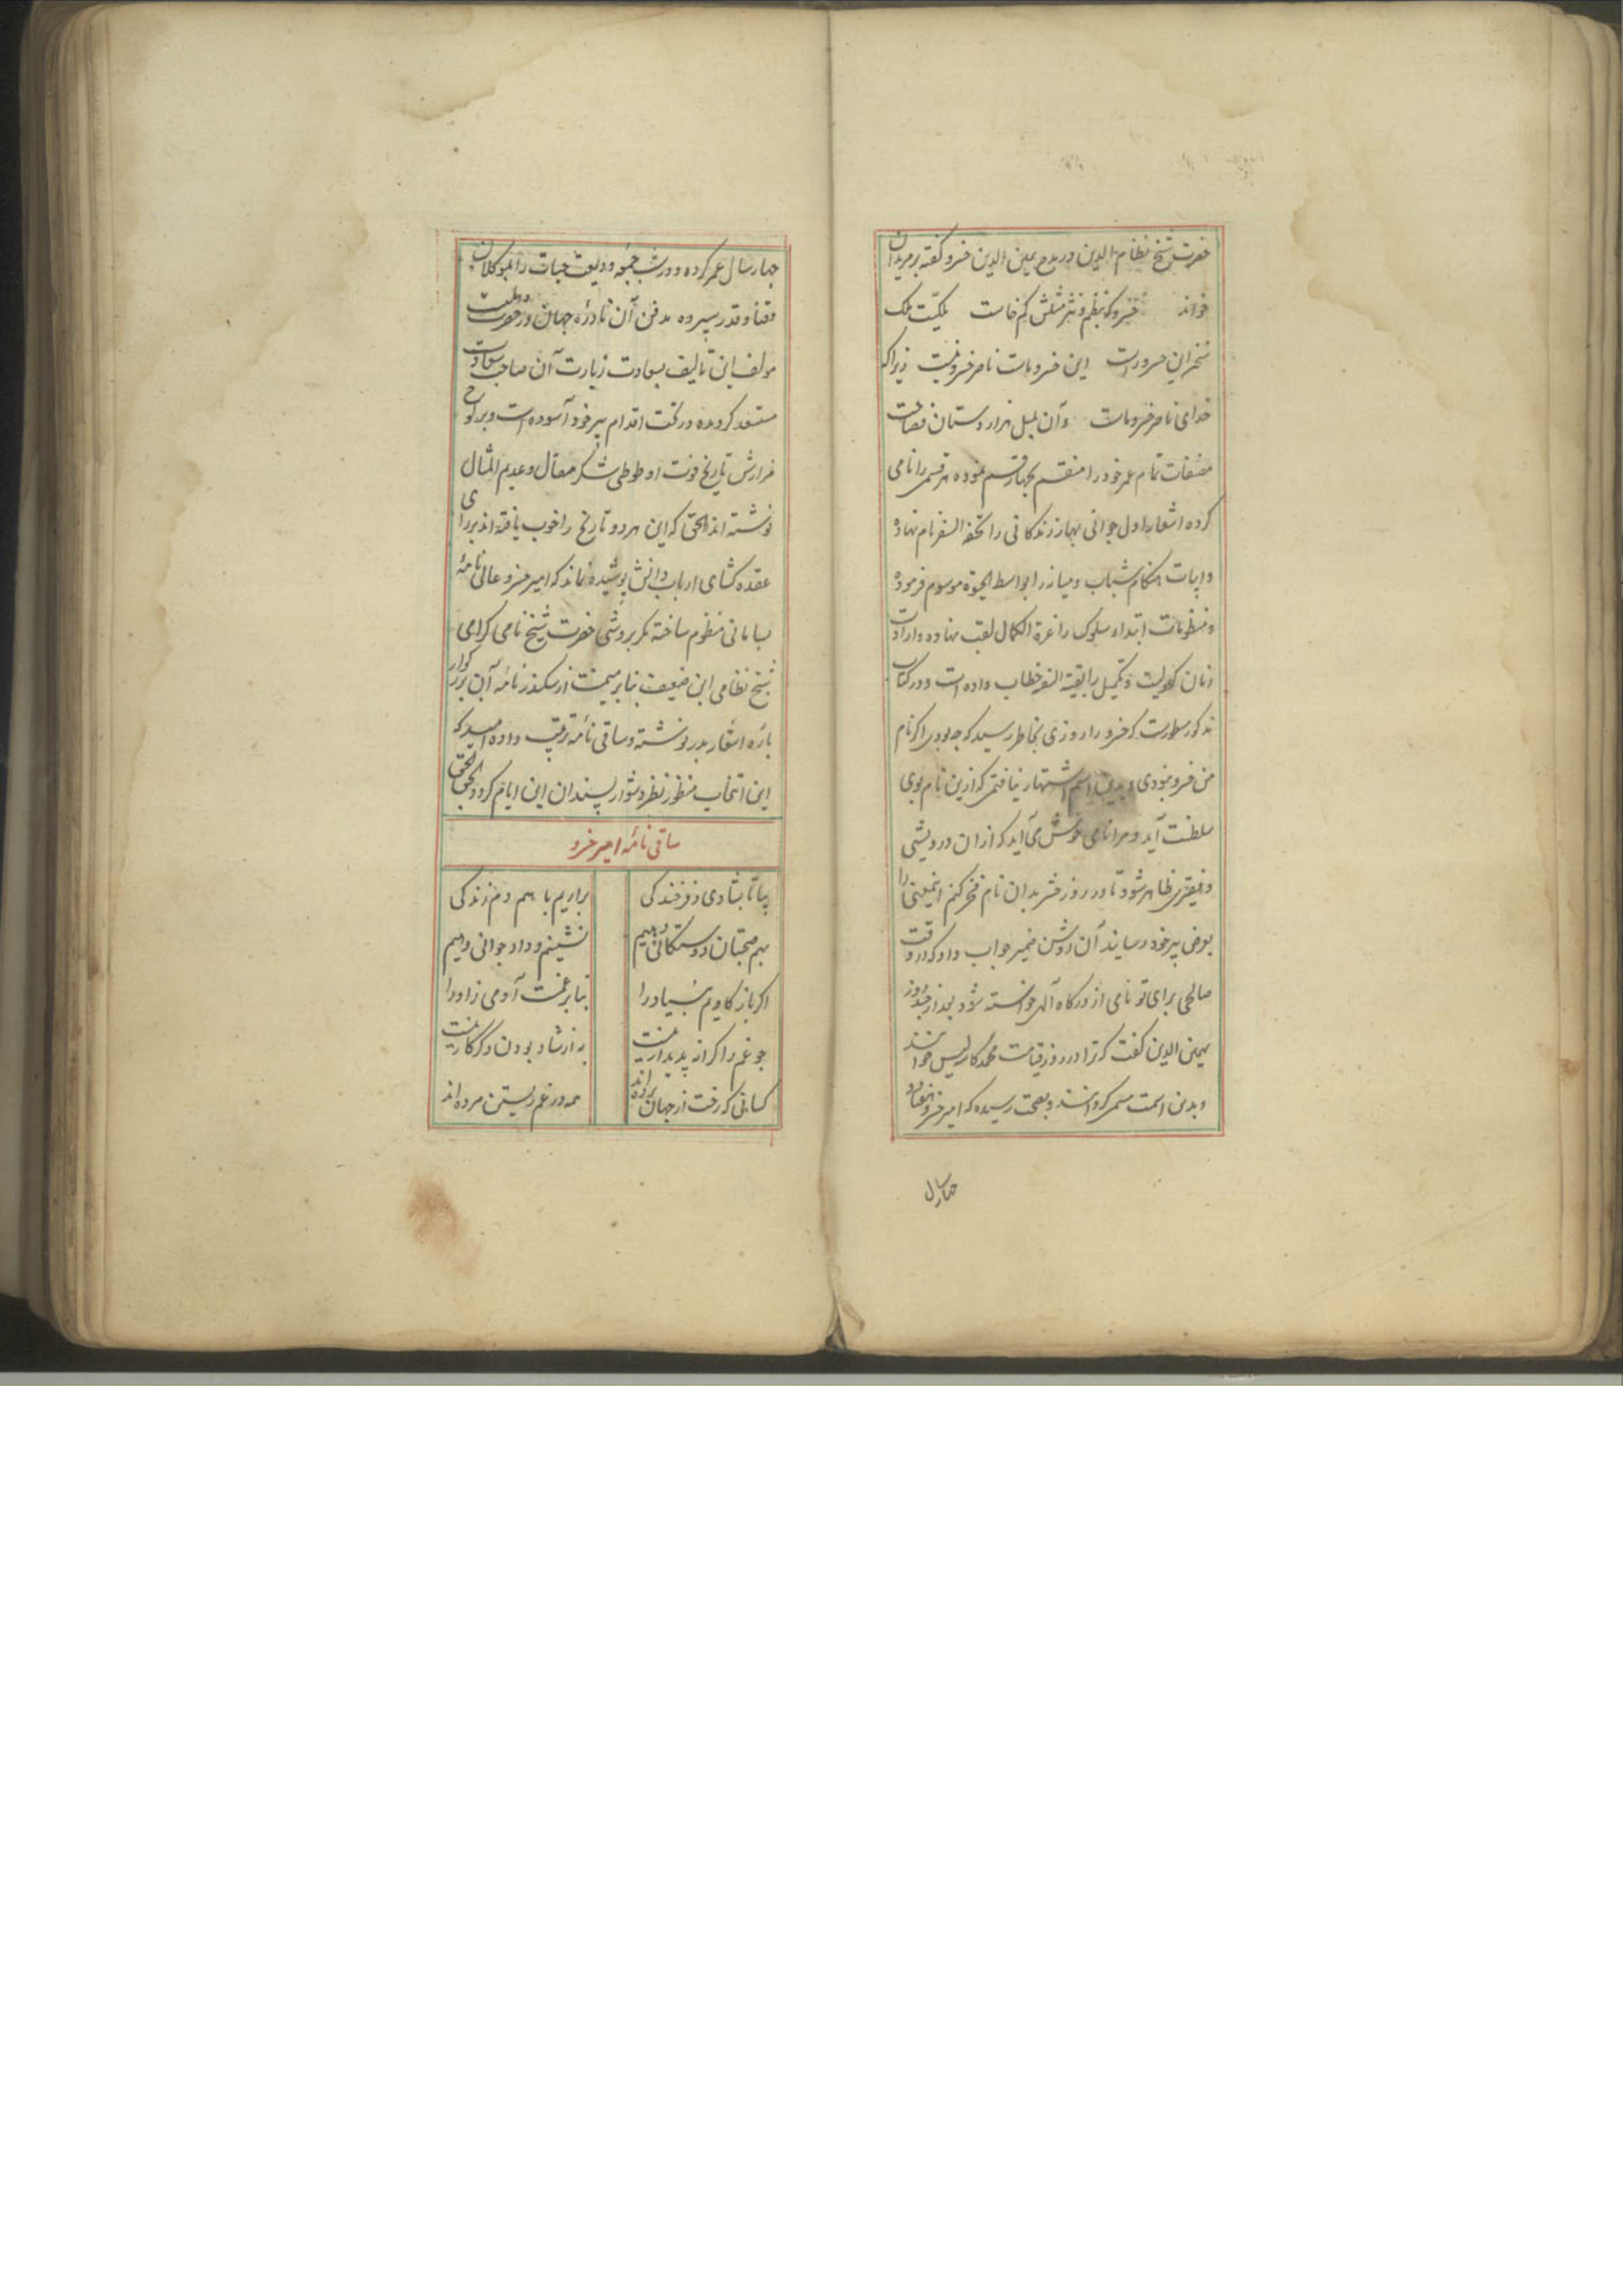 حضرت شیخ نظام الدین در مدح یمین الدین خسرو گفته بر مریدان
خواند خسرو که بنظم و نثر مثلش کم خاست ملکیت ملک
سخن این خسرو راست این خسرو ماست ناصر خسرو نیست زیرا که
خدای ناصر خسرو ماست و آن بلبل هزار دستان فصاحت
مصنفات تمام عمر خود را منقسم بچهار قسم نموده هر قسمی را نامی
کرده اشعار اول جوانی بهار زندکانی را تحفة الصغر نام نهاده
و ابیات هنکام شباب و میانه را بواسط الحیوة موسوم فرموده
و منظومات ابتداء سلوک را غرة الکمال لقب نهاده و اردات
زمان کهولیت و تکمیل را بقیة النقیه خطاب داده است و در کتاب
مذکور مسطورست که خسرو را روزی بخاطر رسید که چه بودی اکر نام
من خسرو نبودی و بدین اسم اشتهار نیافتمی که ازین نام بوی
سلطنت آید و مرا نامی خوش می آید که از ان درویشی
و فقیری ظاهر شود تا در روز حشر بدان نام فخر کنم اینمعنی را
بعرض پیر خود رسانید آن روشن ضمیر جواب داد که در وقت
صالحی برای تو نامی از درکاه آلهی خواسته شود بعد از چند روز
بیمین الدین کفت که ترا در روز قیامت محمد کاسه لیس خوانند
و بدین اسمت مسمی کردانند و بصحت رسیده که امیر خسرو هفتاد
چهار سال
چهار سال عمر کرده و در شب جمعه ودیعت حیات را بموکلان
قضا و قدر سپرده مدفن آن نادرۀ جهان در حضرت دهلیست
مولف این تالیف بسعادت زیارت آن صاحب سعادت
مستسعد کردیده در تحت اقدام پیر خود آسوده است و بر لوح
مزارش تاریخ فوت او طوطی شکر مقال و عدیم المثال
نوشته اند الحق که این هر دو تاریخ را خوب یافته اند بر رای
عقده کشای ارباب دانش پوشیده نماند که امیر خسرو عالی نامۀ
بسامانی منظوم ساخته مکر بروشی حضرت شیخ نامی کرامی
شیخ نظامی این ضعیف بنابر سیمنت از سکندر نامۀ آن بزرکوار
پارۀ اشعار بدر نوشته و ساقی نامه ترتیب داده امید که
این انتخاب منظور نظر دشوار پسندان این ایام کردد بحق الحق
ساقی نامۀ امیر خسرو
بیا تا بشادی و فرخندکی براریم با هم دم زندکی
بهم صحبتان دوستکانی دهیم نشینیم و داد جوانی دهیم
اکر باز کاویم بنیاد را بنا بر غمست آدمی زاد را
چو غم را کرانه پدیدار نیست به از شاد بودن دکر کار نیست
کسانی که رخت از جهان برده اند همه در غم زیستن مرده اند